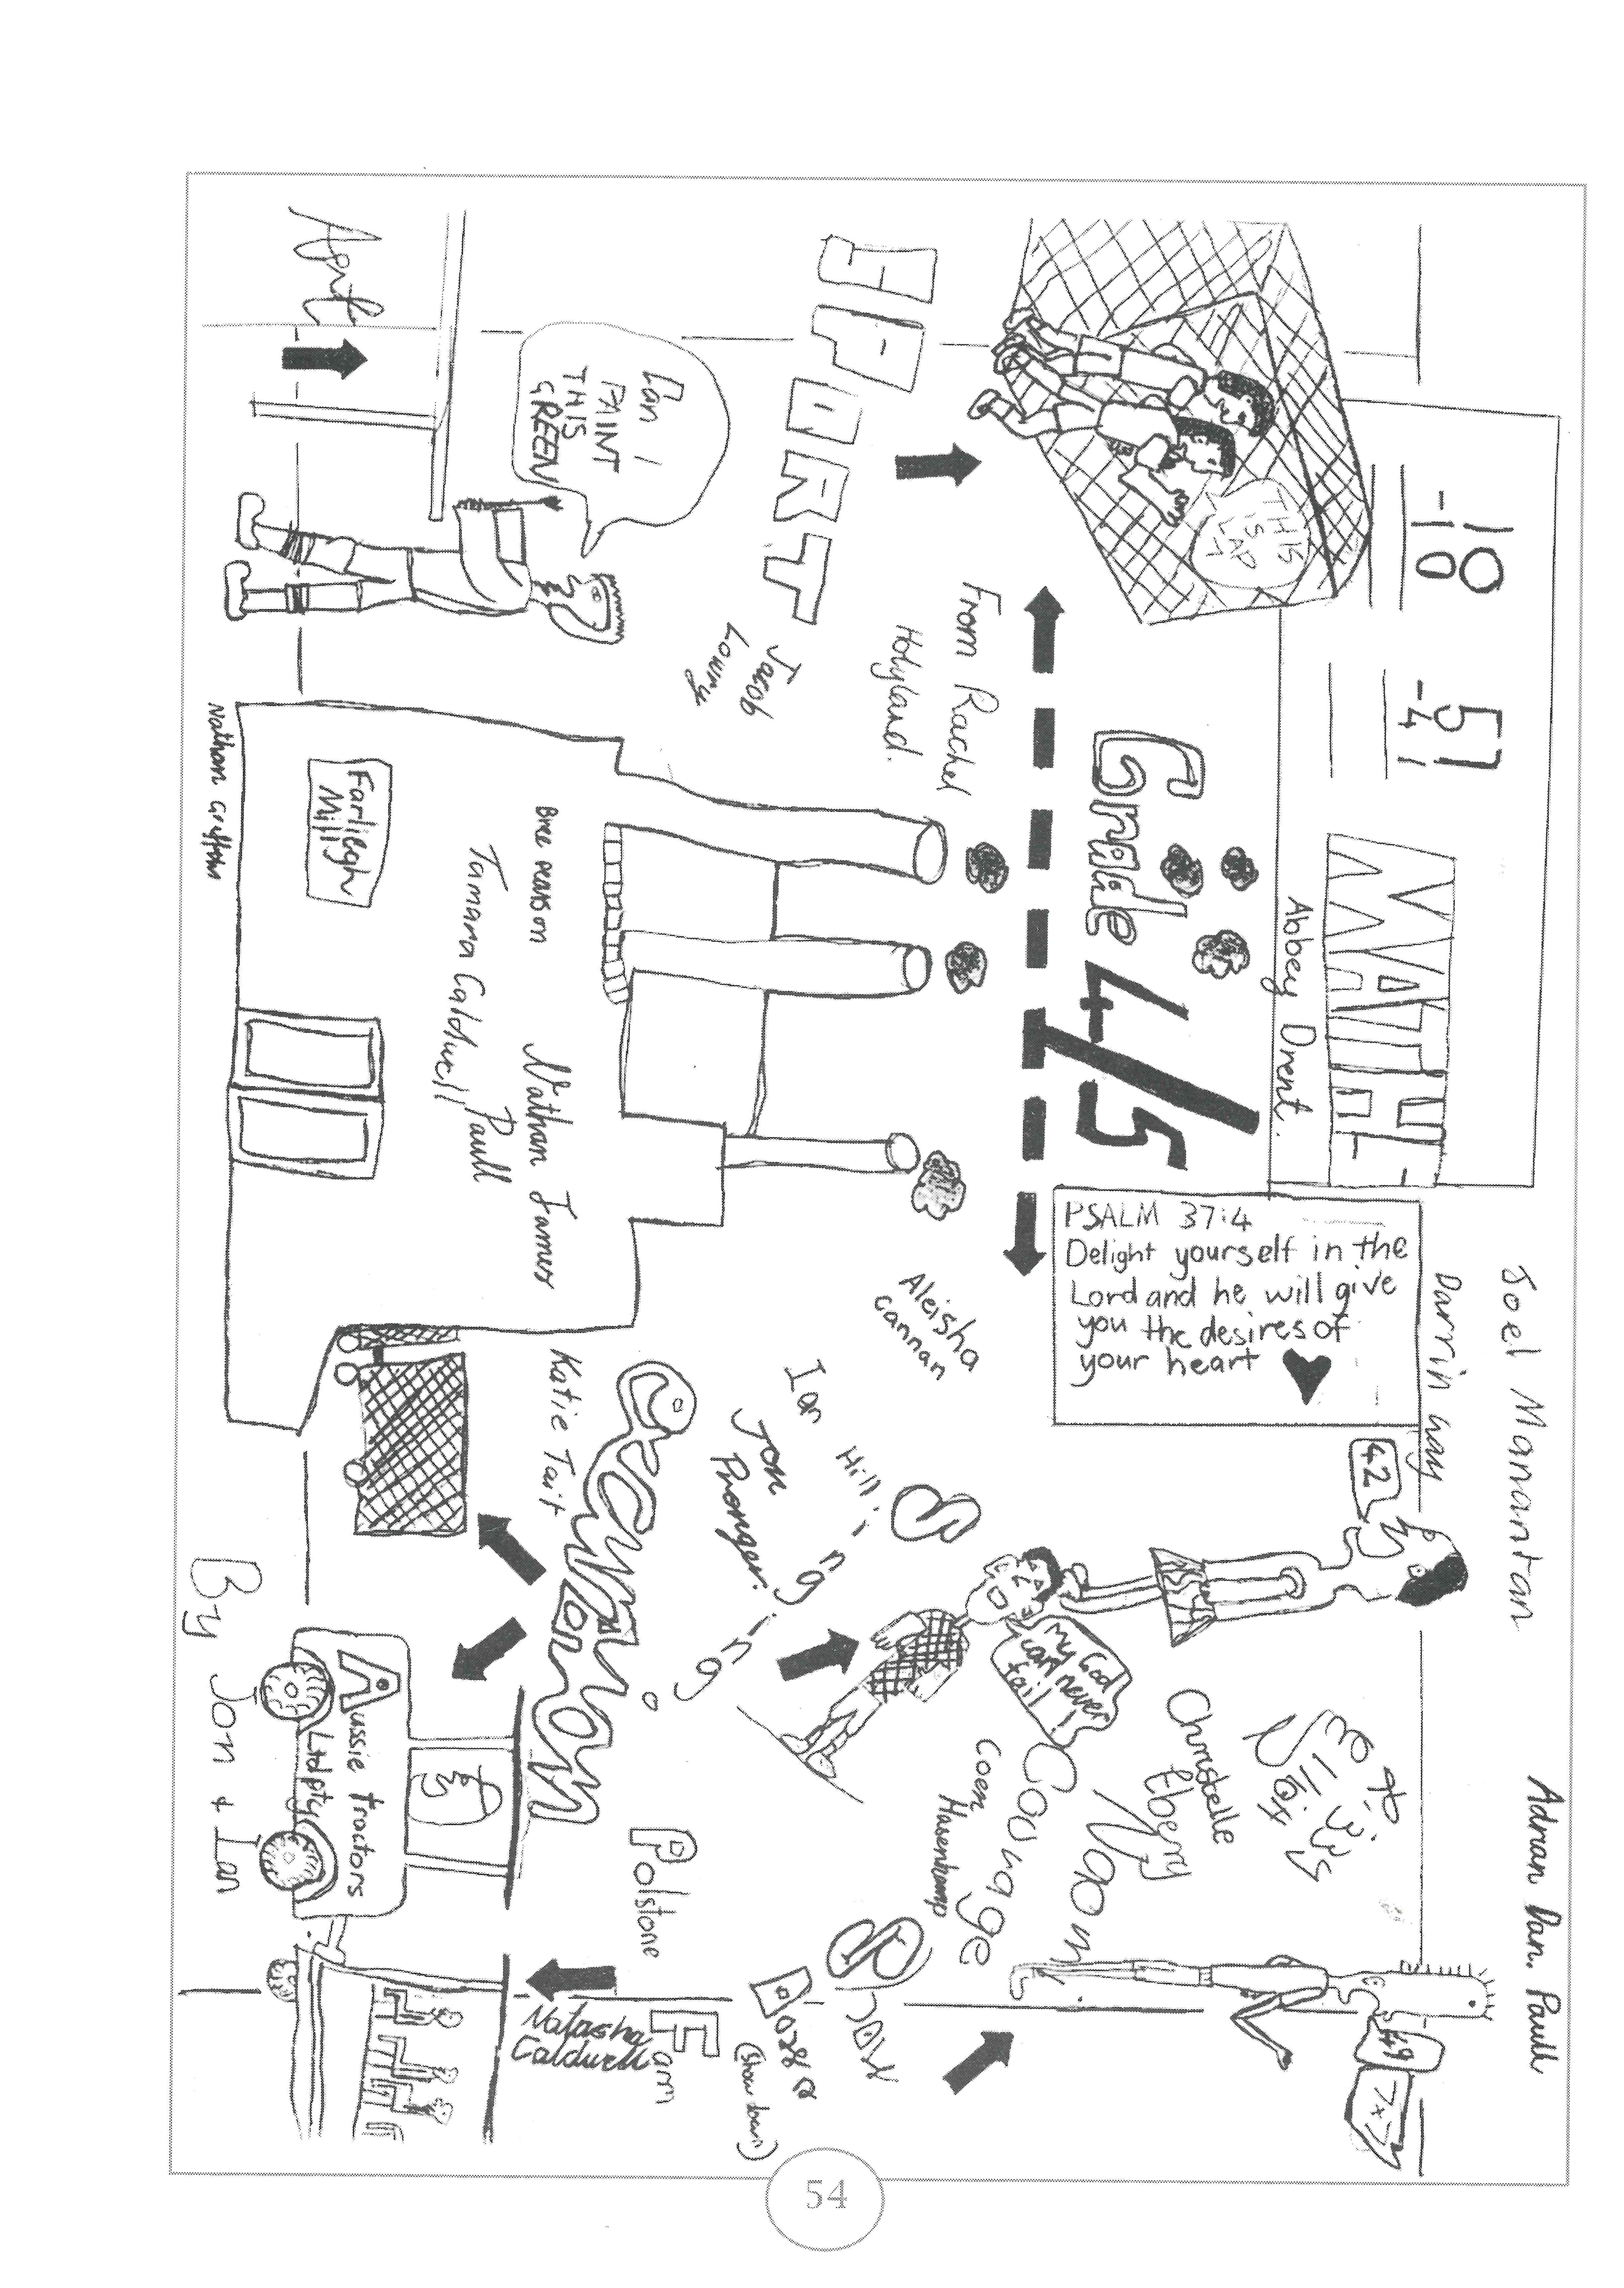 Joel Mannantan
Adrian Dan. Paull
Darrin Gray
10
-10
51
-41
MATHE
Abbey Drent.
42
49
7x7
PSALM 37:4
Delight yourself in the
Lord and he will give
you the desires of
your heart
Grade 4/5
THIS
IS
LAP
7
My God
can never
fail
Christelle
Eberry
From Rachel
Holyland.
SPORT
Jacob
Lowry
Can I
PAINT
THIS
GREEN
Art
Aleisha
Cannan
Ian Hill
Jon
Pronger.
Singing
Courage
Coen
Hasenkamp
Bree
Nathan James
Paull
Tamara Caldwell
Farliegh
Mill
Nathan
Katie Tait
Excursion
Polstone
Farm
Natasha
Caldwell
(Show down)
Aussie Tractors
Ltd pty
By Jon & Ian
54